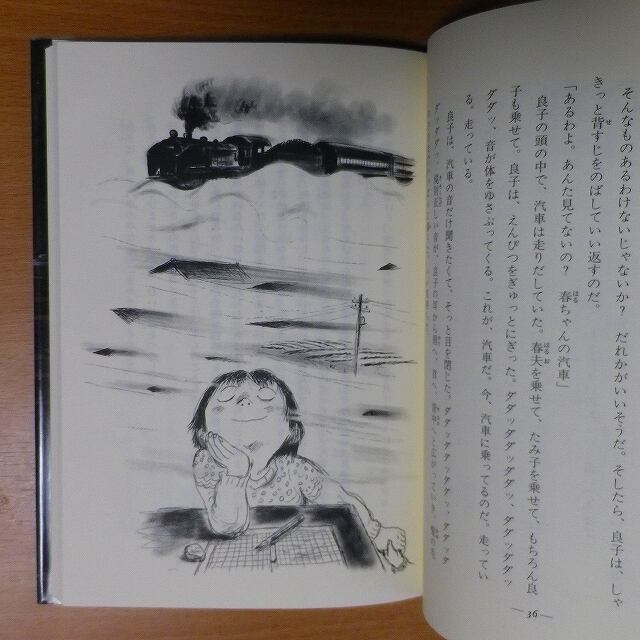 そんなものあるわけないじゃないか？　だれかがいいそうだ。そしたら、良子は、しゃ
きっと背すじをのばしていい返すのだ。
「あるわよ。あんた見てないの？　春ちゃんの汽車」
良子の頭の中で、汽車は走りだしていた。春夫を乗せて、たみ子を乗せて、もちろん良
子も乗せて。良子は、えんぴつをぎゅっとにぎった。ダダッダダッダダッ、ダダッダダッ
ダダッ、音が体をゆさぶってくる。これが、汽車だ。今、汽車に乗ってるのだ。走ってい
る。走っている。
良子は、汽車の音だけ聞きたくて、そっと目を閉じた。ダダッダダッダダッ、ダダッダ
36